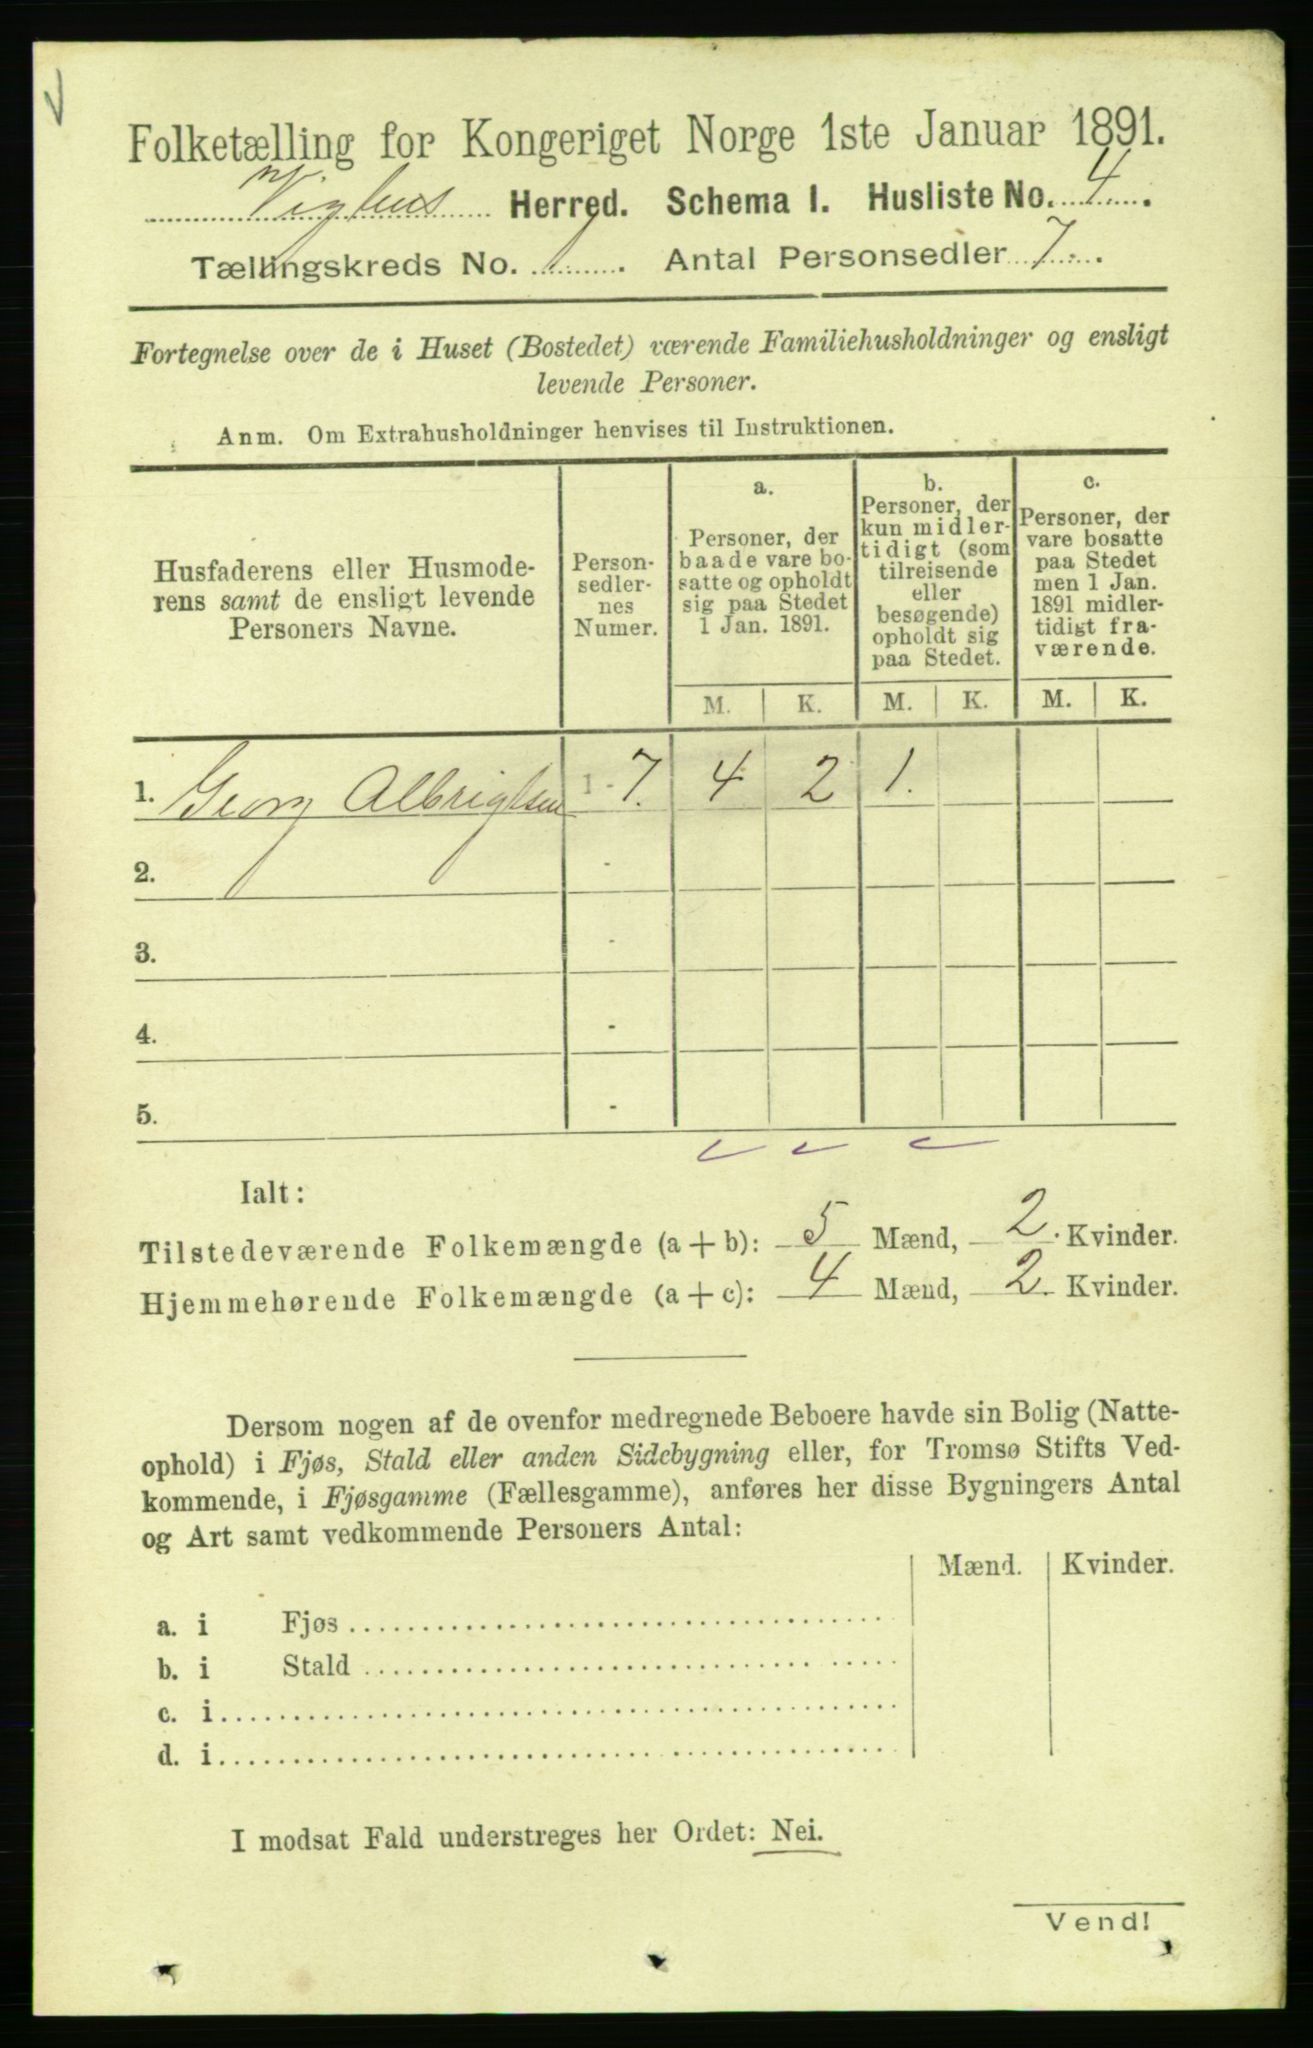 Folketælling for Kongeriget Norge 1ste Januar 1891.
Herred. Schema I. Husliste No. 4.
Tællingskreds No. 1. Antal Personsedler 7.
Fortegnelse over de i Huset (Bostedet) værende Familiehusholdninger og ensligt
levende Personer.
Anm. Om Extrahusholdninger henvises til Instruktionen.
Husfaderens eller Husmode-
rens samt de ensligt levende
Personers Navne.
Person-
sedler-
nes
Numer.
a.
Personer, der
baade vare bo-
satte og opholdt
sig paa Stedet
1 Jan. 1891.
b.
Personer, der
kun midler-
tidigt (som
tilreisende
eller
besøgende)
opholdt sig
paa Stedet.
c.
Personer, der
vare bosatte
paa Stedet
men 1 Jan.
1891 midler-
tidigt fra-
værende.
M. K. M. K. M. K.
1. Georg Albrigtsen 1 - 7. 4 2 1.
2. -
3. -
4. -
5. -
Ialt:
Tilstedeværende Folkemængde (a + b): 5 Mænd, 2. Kvinder.
Hjemmehørende Folkemængde (a + c): 4 Mænd, 2. Kvinder.
Dersom nogen af de ovenfor medregnede Beboere havde sin Bolig (Natte-
ophold) i Fjøs, Stald eller anden Sidebygning eller, for Tromsø Stifts Ved-
kommende, i Fjøsgamme (Fællesgamme), anføres her disse Bygningers Antal
og Art samt vedkommende Personers Antal:
Mænd. Kvinder.
a. i Fjøs
b. i Stald
c. i
d. i
I modsat Fald understreges her Ordet: Nei.
Vend!